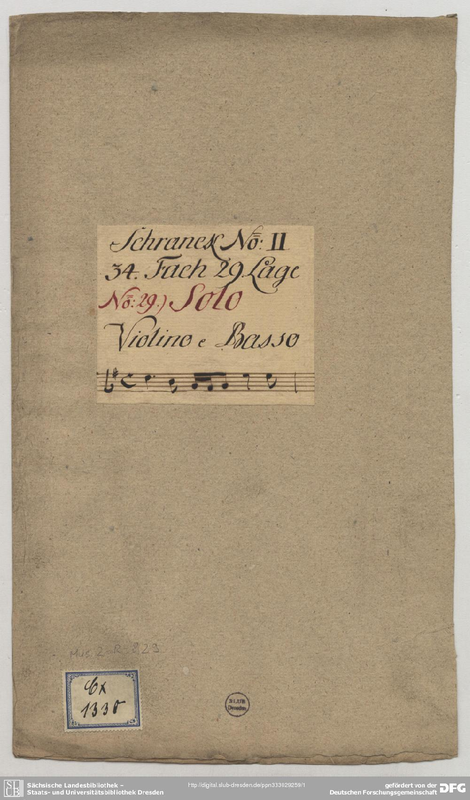 Schranck No: II
34. Fach 29 Lage
No: 29.) Solo
Violino e Basso
Mus 2-R-8,29
Cx
1330
SLUB
Dresden
Sächsische Landesbibliothek –
Staats- und Universitätsbibliothek Dresden
http://digital.slub-dresden.de/ppn333929259/1
gefördert von der
Deutschen Forschungsgemeinschaft
DFG